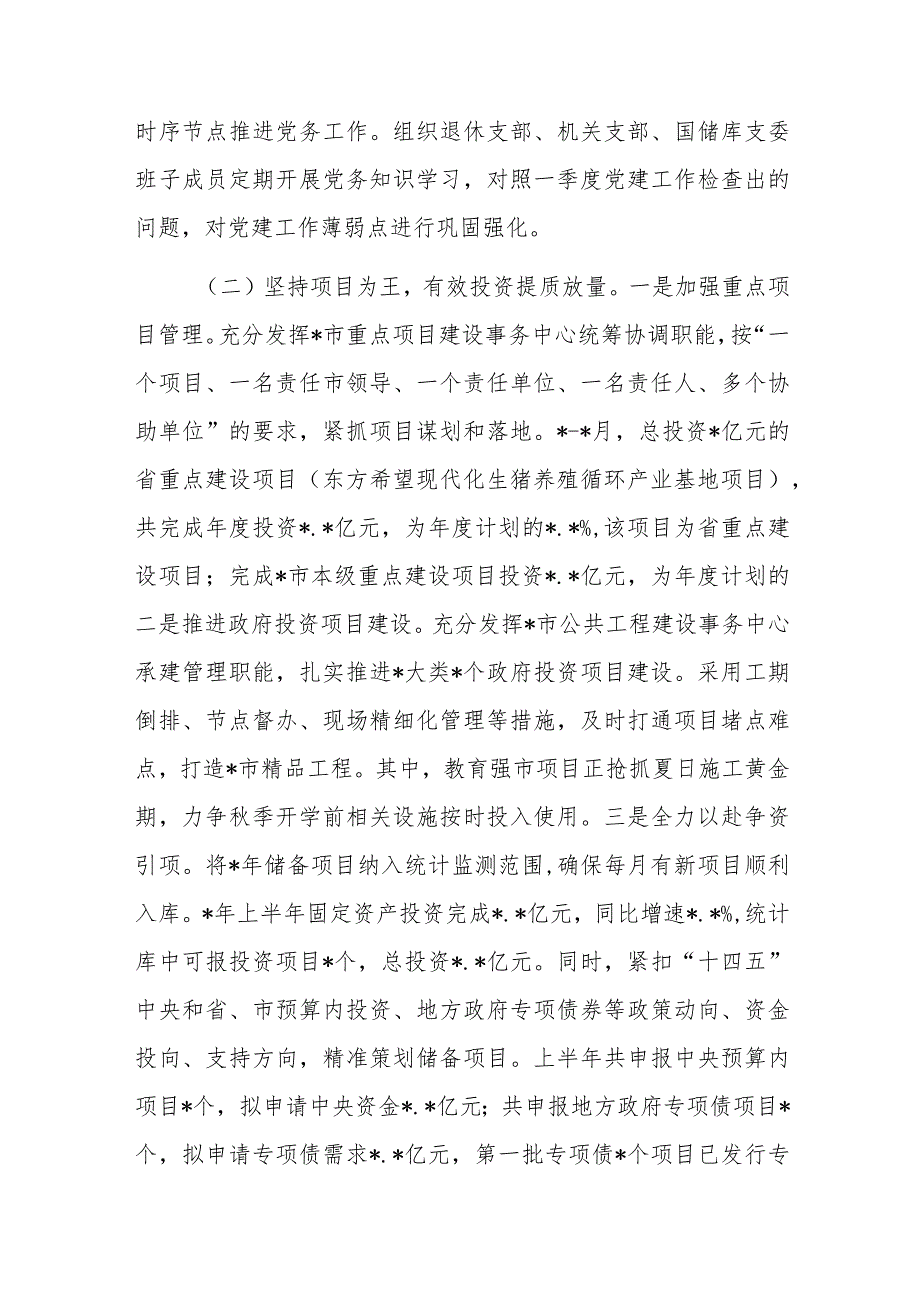 时序节点推进党务工作。组织退休支部、机关支部、国储库支委
班子成员定期开展党务知识学习，对照一季度党建工作检查出的
问题，对党建工作薄弱点进行巩固强化。
（二）坚持项目为王，有效投资提质放量。一是加强重点项
目管理。充分发挥*市重点项目建设事务中心统筹协调职能,按“一
个项目、一名责任市领导、一个责任单位、一名责任人、多个协
助单位”的要求，紧抓项目谋划和落地。*-*月，总投资*亿元的
省重点建设项目（东方希望现代化生猪养殖循环产业基地项目），
共完成年度投资*.*亿元，为年度计划的*.*%,该项目为省重点建
设项目；完成*市本级重点建设项目投资*.*亿元，为年度计划的
二是推进政府投资项目建设。充分发挥*市公共工程建设事务中心
承建管理职能，扎实推进*大类*个政府投资项目建设。采用工期
倒排、节点督办、现场精细化管理等措施，及时打通项目堵点难
点，打造*市精品工程。其中，教育强市项目正抢抓夏日施工黄金
期，力争秋季开学前相关设施按时投入使用。三是全力以赴争资
引项。将*年储备项目纳入统计监测范围,确保每月有新项目顺利
入库。*年上半年固定资产投资完成*.*亿元，同比增速*.*%,统计
库中可报投资项目*个，总投资*.*亿元。同时，紧扣“十四五”
中央和省、市预算内投资、地方政府专项债券等政策动向、资金
投向、支持方向，精准策划储备项目。上半年共申报中央预算内
项目*个，拟申请中央资金*.*亿元；共申报地方政府专项债项目*
个，拟申请专项债需求*.*亿元，第一批专项债*个项目已发行专